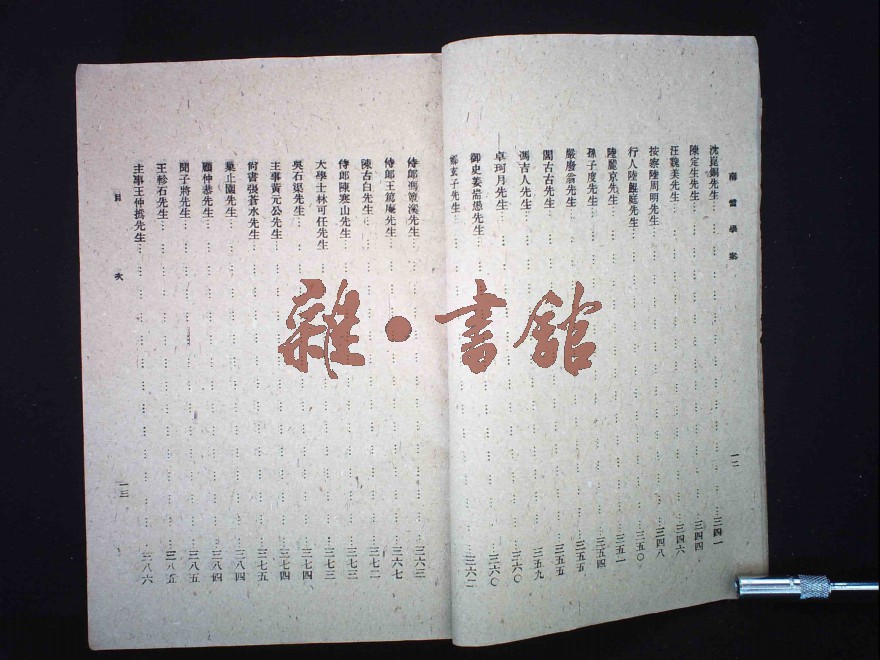 南雷學案
沈崑銅先生…三四一
陳定生先生…三四四
汪魏美先生…三四六
按察陸周明先生…三四八
行人陸鯤庭先生…三五〇
陸麗京先生…三五一
孫子度先生…三五四
嚴廢翁先生…三五五
閻古古先生…三五五
馮吉人先生…三五九
卓珂月先生…三六〇
御史姜耑愚先生…三六〇
玄子先生…三六二
一二
侍郎馮簟溪先生…三六三
侍郎王篤庵先生…三六七
陳古白先生…三七二
侍郎陳寒山先生…三七二
大學士林可任先生…三七三
吳石渠先生…三七四
主事黃元公先生…三七四
尚書張蒼水先生…三七五
巢止園先生…三八四
顧仲恭先生…三八四
聞子將先生…三八五
王軫石先生…三八五
主事王仲撝先生…三八六
目次
一三
雜·書館